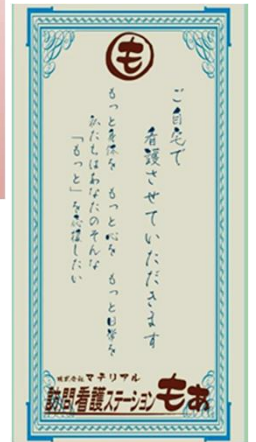 も
ご自宅で
看護させていただきます
もっと身体を もっと心を もっと日常を
私たちはあなたのそんな
「もっと」を応援したい
株式会社マテリアル
訪問看護ステーションもあ